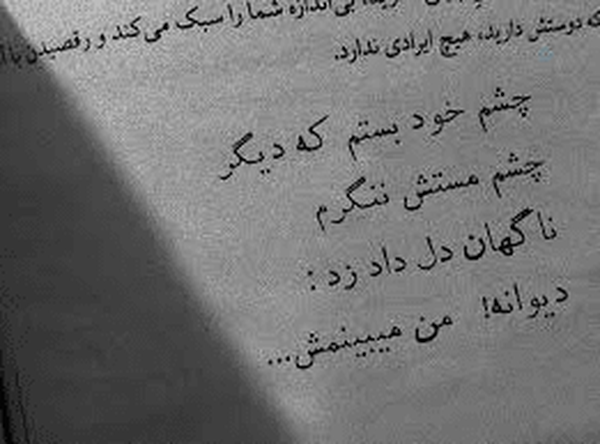 بی‌اندازه شما را سبک می‌کند و رقصیدن با
که دوستش دارید، هیچ ایرادی ندارد.
چشم خود بستم که دیگر
چشم مستش ننگرم
ناگهان دل داد زد :
دیوانه! من میبینمش...